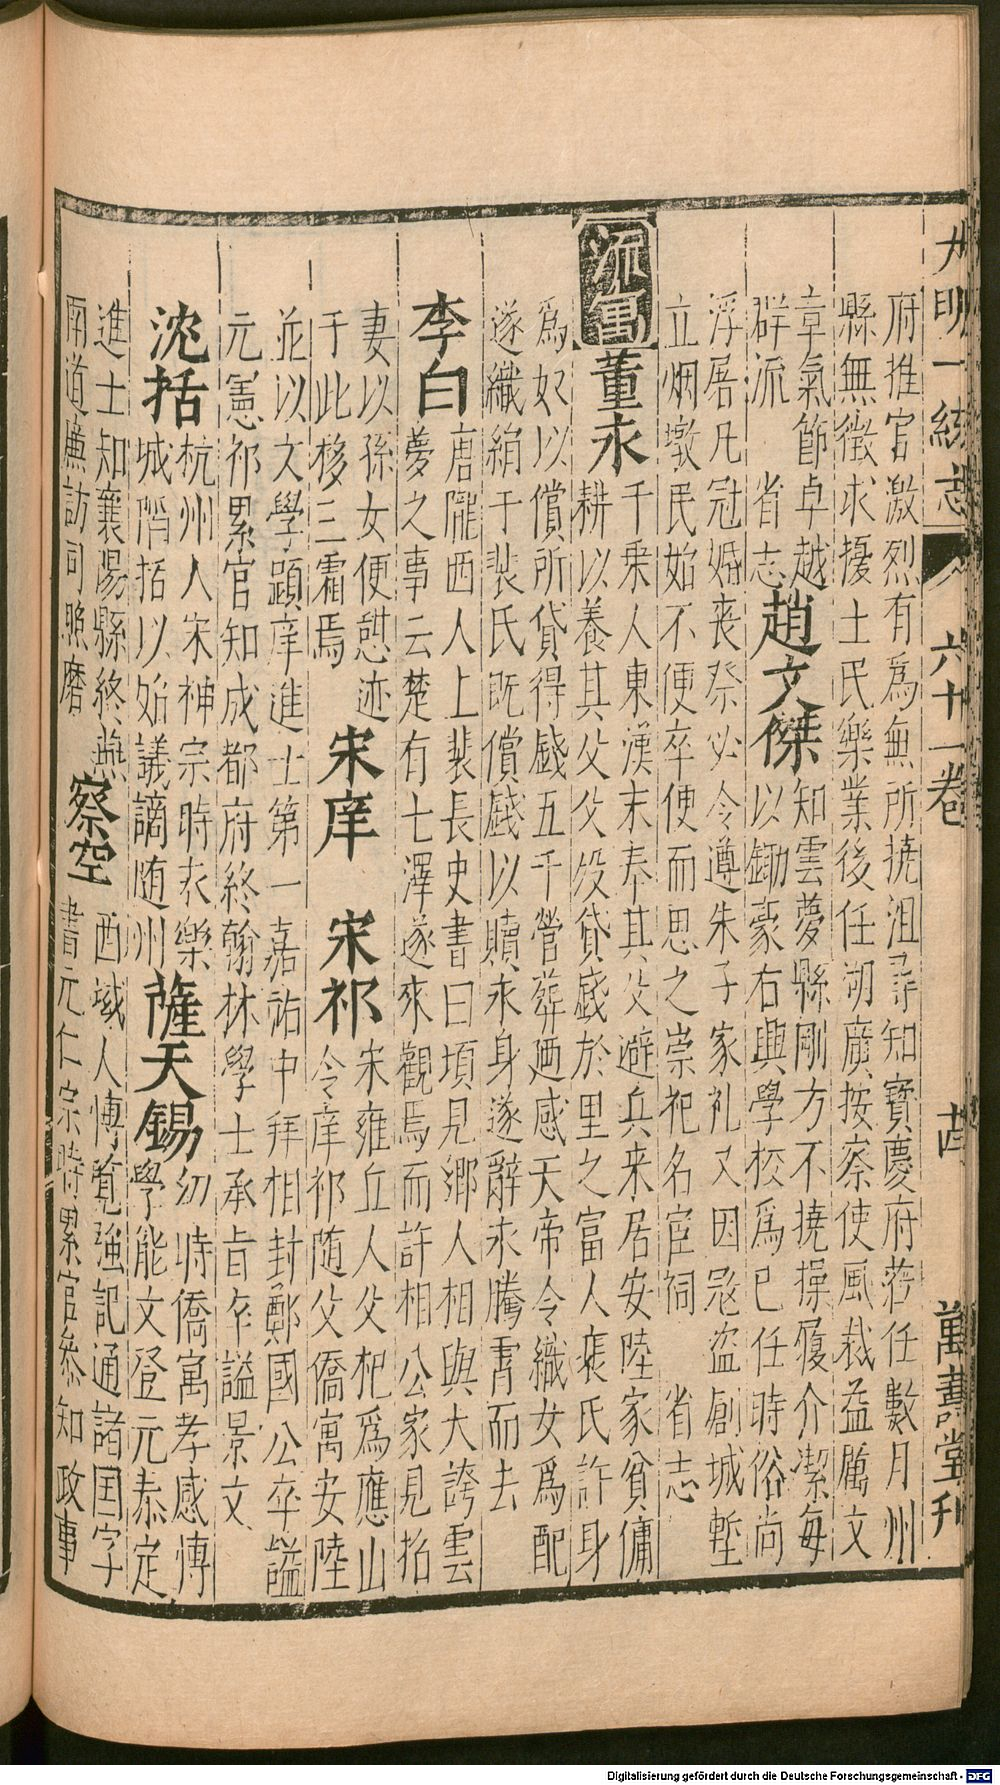 大明一統志 六十一卷 萬壽堂刊
府推官激烈有爲無所撓沮尋知寶慶府蒞任數月州
縣無徵求擾土民樂業後任湖廣按察使風裁益厲文
章氣節卓越
群流 省志
趙文傑
知雲夢縣剛方不撓操履介潔每
以鋤豪右興學校爲已任時俗尚
浮屠凡冠婚喪祭必令遵朱子家礼又因寇盗創城塹
立烟墩民始不便卒便而思之崇祀名宦祠 省志
流寓
董永
千乗人東漢末奉其父避兵来居安陸家貧傭
耕以養其父父殁貸錢於里之富人裴氏許身
爲奴以償所貸得錢五千營葬廼感天帝令織女爲配
遂織絹于裴氏既償錢以贖永身遂辭永騰霄而去
李白
唐隴西人上裴長史書曰頃見鄉人相與大誇雲
夢之事云楚有七澤遂來觀焉而許相公家見招
妻以孫女便憇迹
于此移三霜焉
宋庠 宋祁
宋雍丘人父杞爲應山
令庠祁随父僑寓安陸
並以文學顕庠進士第一嘉祐中拜相封鄭國公卒謚
元憲祁累官知成都府終翰林學士承旨卒謚景文
沈括
杭州人宋神宗時永樂
城陷括以始議謫随州
薩天錫
幼時僑寓孝感博
學能文登元泰定
進士知襄陽縣終燕
南道廉訪司照磨
察罕
西域人博覧強記通諸国字
書元仁宗時累官參知政事